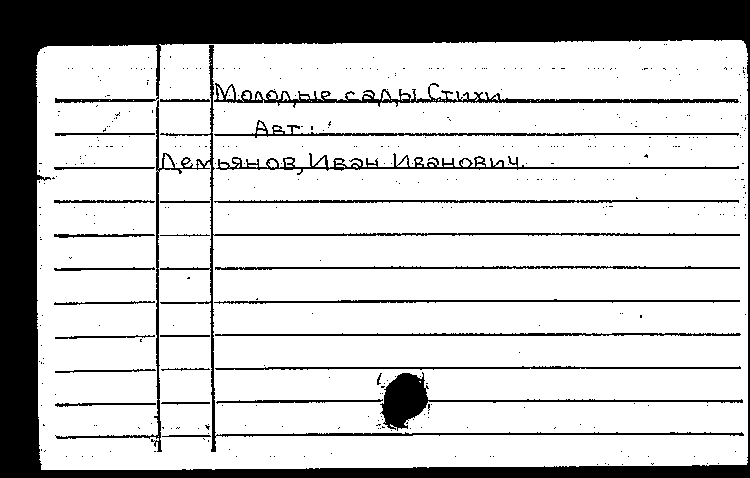 Молодые сады. Стихи.
Авт.:
Демьянов, Иван Иванович.